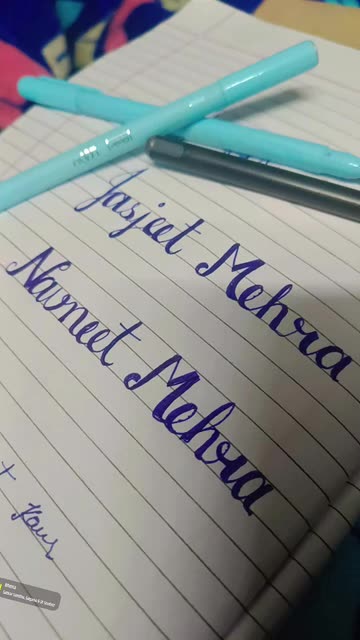 Jasjeet Mehra
Navneet Mehra
Kaur